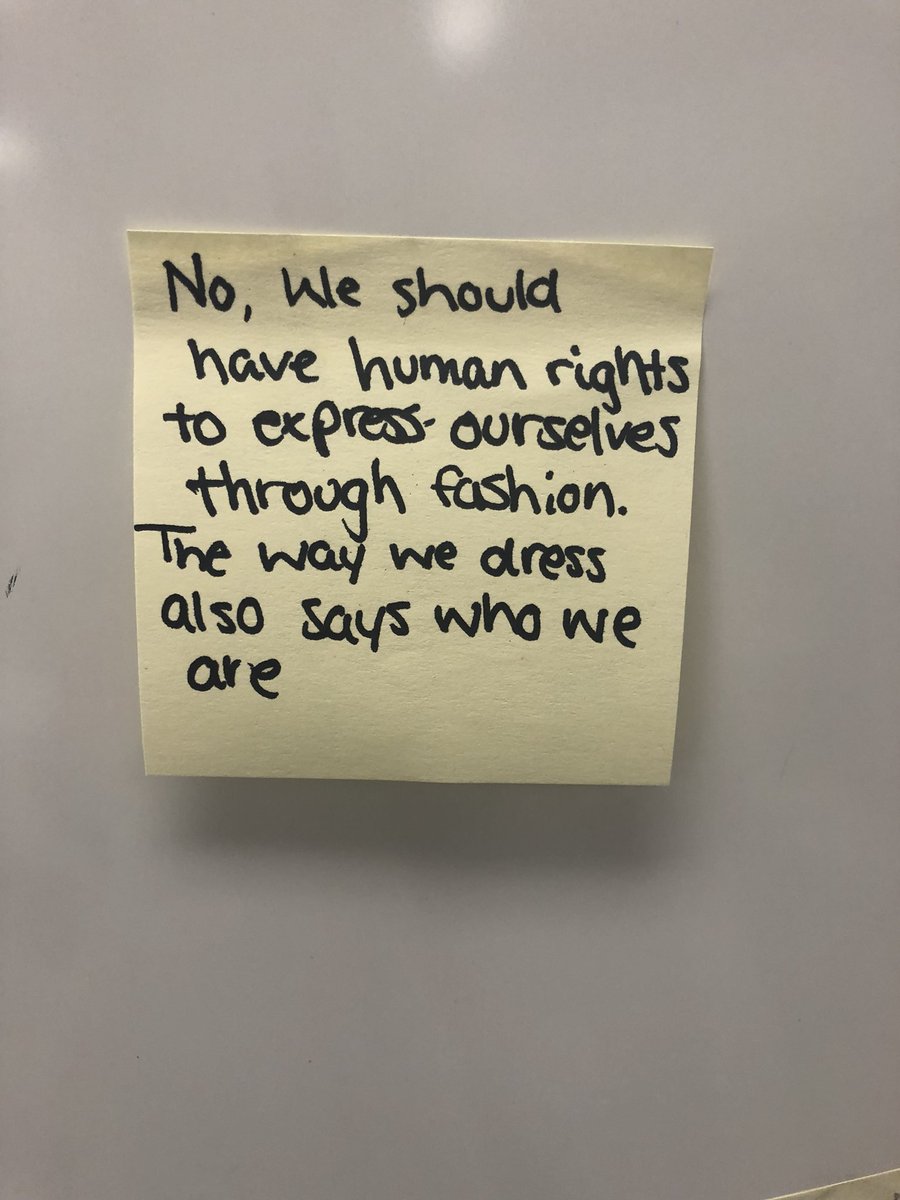 No, We should
have human rights
to express ourselves
through fashion.
The way we dress
also says who we
are